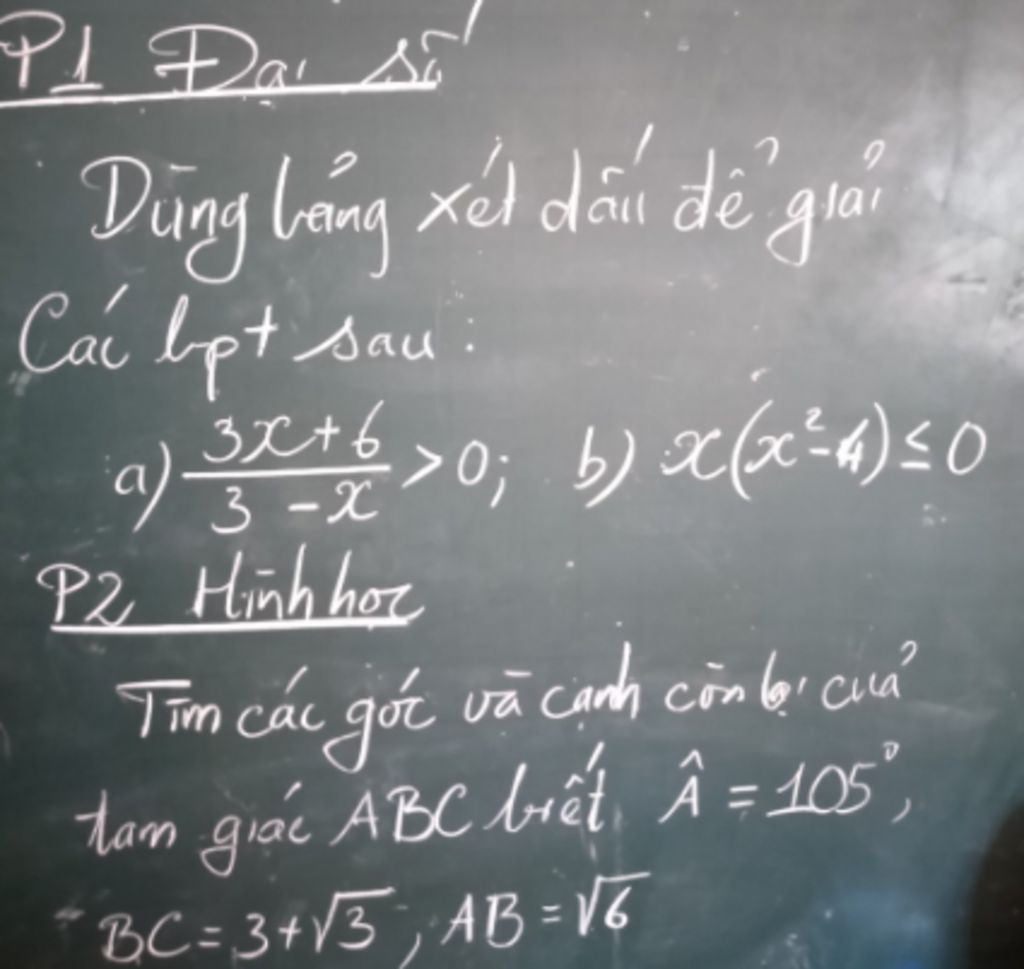 P1 Đại số
Dùng bảng xét dấu để giải
Các bpt sau:
a) \frac{3x+6}{3-x} > 0; b) x(x²-4) ≤ 0
P2 Hình học
Tìm các góc và cạnh còn lại của
tam giác ABC biết Â = 105°,
BC = 3+√3, AB = √6